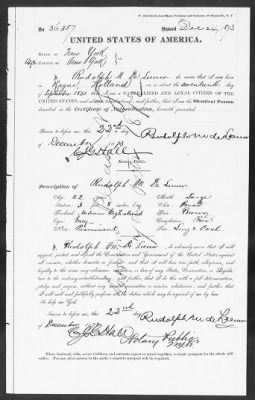 No 36387 Issued Dec 24 1873
UNITED STATES OF AMERICA.
STATE OF New York
City OF New York
I, Rudolph M. De Leeuw do swear that I was born
in Hague, Holland on the seventeenth day
of September 1851; that I am a NATURALIZED AND LOYAL CITIZEN OF THE
UNITED STATES, and further, that I am the identical Person
described in the Certificate of Naturalization, herewith presented.
Sworn to before me, this 22nd day of
Rudolph M de Leeuw
December
C. J. Hall
Notary Public
Description of Rudolph M De Leeuw
Age: 22 Mouth Large
Stature: 5 Chin: Round
Forehead: Medium High & broad Hair: Brown
Eyes: Grey Complexion:
Nose: Prominent Face: Long & Oval
I, Rudolph M. De Leeuw do solemnly swear that I will
support, protect and defend the Constitution and Government of the United States against
all enemies, whether domestic or foreign; and that I will bear true faith, allegiance, and
loyalty to the same, any ordinance, resolution, or law of any State, Convention, or Legisla-
ture to the contrary notwithstanding; and further, that I do this with a full determination,
pledge and purpose, without any mental reservation or evasion whatsoever; and further, that
I will well and faithfully perform all the duties which may be required of me by law.
So help me God.
Sworn to before me this 22nd day of
Rudolph M de Leeuw
December
C. J. Hall Notary Public